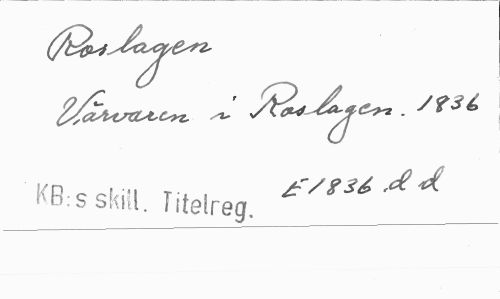 Roslagen
Värvaren i Roslagen. 1836
KB:s skill. Titelreg. E 1836 d d